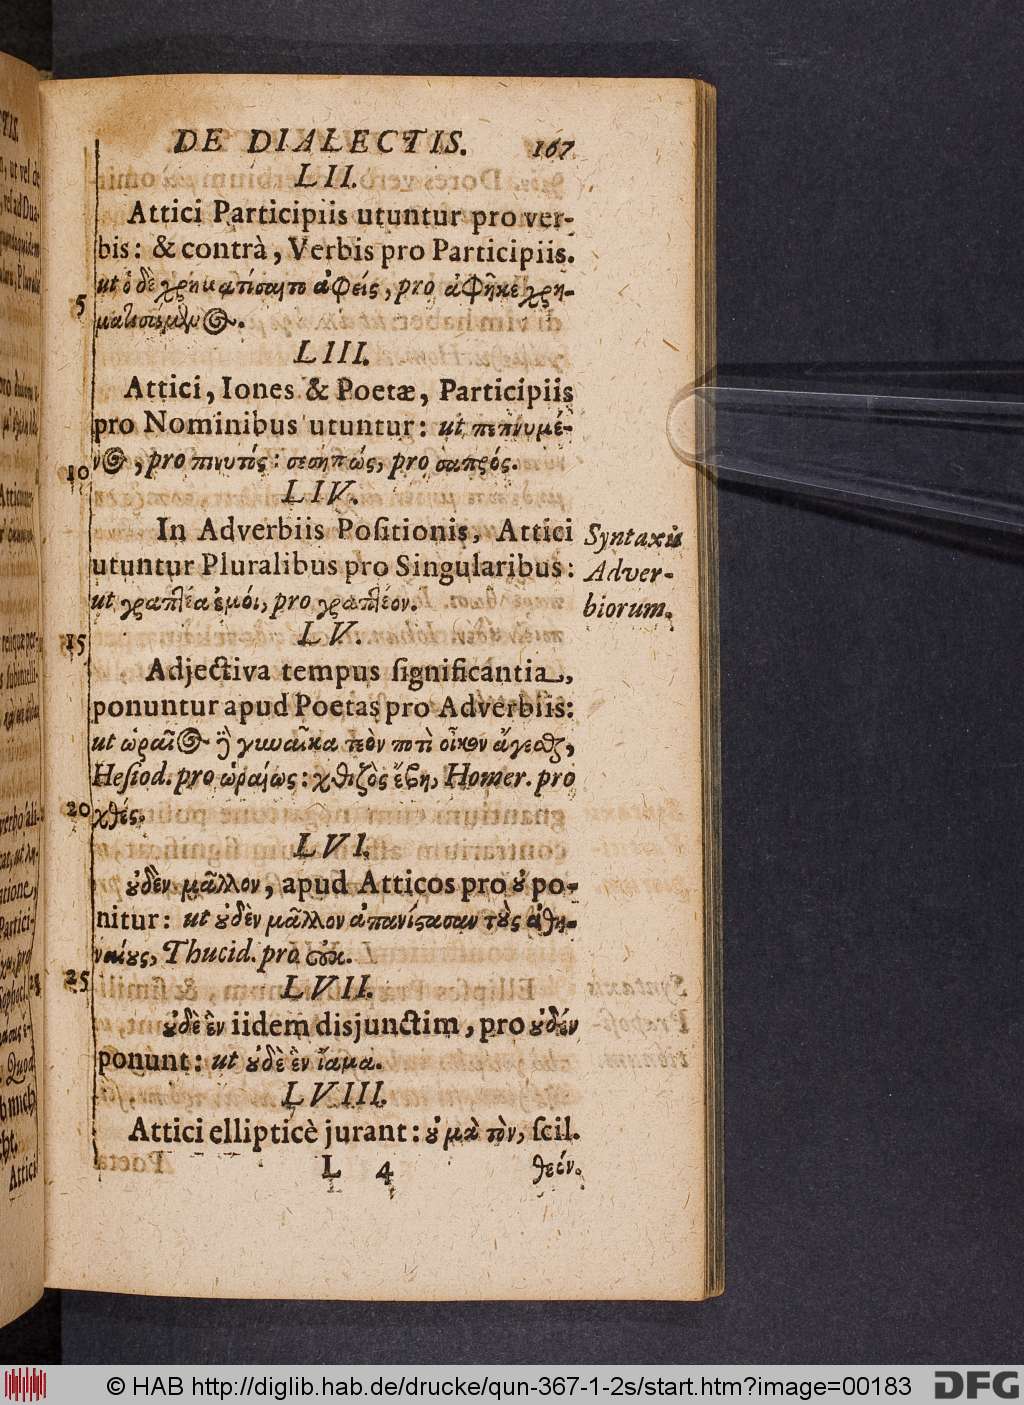 DE DIALECTIS. 167
LII.
Attici Participiis utuntur pro ver-
bis: & contrà, Verbis pro Participiis.
ut ὁ δὲ χρηματίσαιτο ἀφείς, pro ἀφῆκε χρη-
5
ματισάμενος.
LIII.
Attici, Iones & Poetæ, Participiis
pro Nominibus utuntur: ut πεπνυμέ-
10
νος, pro πινυτός: σεσηπώς, pro σαπρός.
LIV.
In Adverbiis Poſitionis, Attici
utuntur Pluralibus pro Singularibus:
ut γραπτέα ἐμόι, pro γραπτέον.
Syntaxis
Adver-
biorum.
LV.
15
Adjectiva tempus ſignificantia,
ponuntur apud Poetas pro Adverbiis:
ut ὡραῖος γυναῖκα τεὸν ποτὶ οἶκον ἄγεσθαι,
Heſiod. pro ὡραίως: χθιζὸς ἔβη, Homer. pro
20
χθές.
LVI.
οὐδὲν μᾶλλον, apud Atticos pro οὐ po-
nitur: ut οὐδὲν μᾶλλον ἀπανίστασαν τοὺς ἀθη-
ναίους, Thucid. pro οὐκ.
25
LVII.
οὐδὲ ἓν iidem disjunctim, pro οὐδέν
ponunt: ut οὐδὲ ἓν ἴαμα.
LVIII.
Attici ellipticè jurant: οὐ μὰ τὸν, ſcil.
L 4 θεόν.
© HAB http://diglib.hab.de/drucke/qun-367-1-2s/start.htm?image=00183
DFG